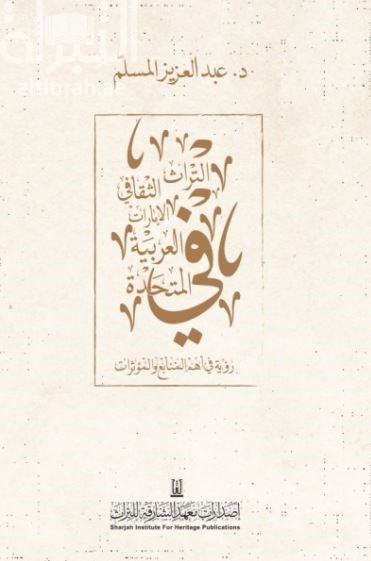 النبراة
alnibrah.ae
د. عبد العزيز المسلّم
التراث
الثقافي
في
الإمارات
العربية
المتحدة
رؤية في أهم المنابع والمؤثرات
إصدارات معهد الشارقة للتراث
Sharjah Institute For Heritage Publications